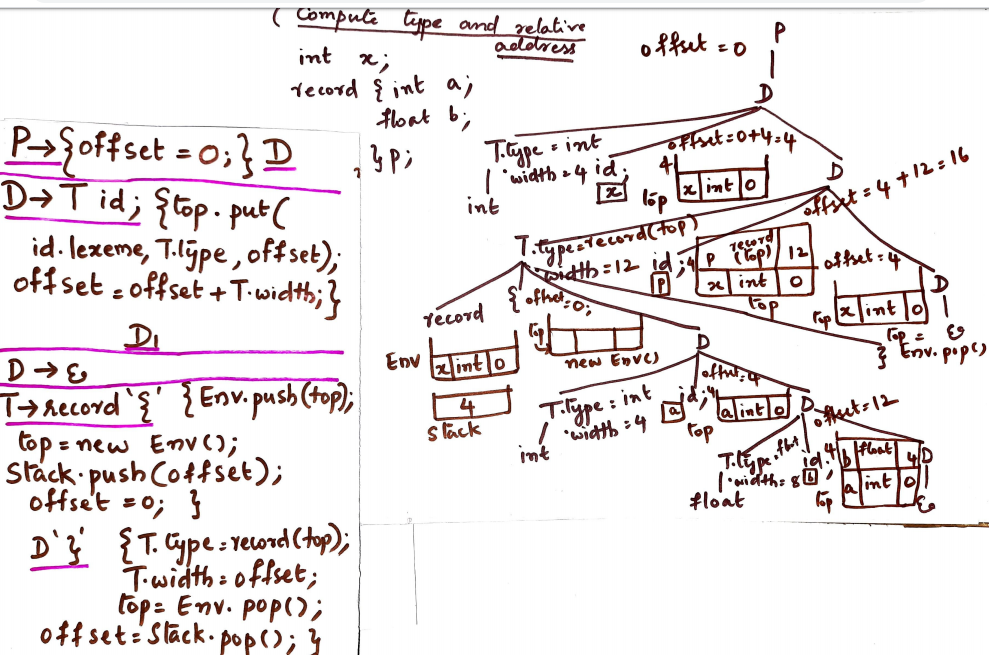 ( Compute type and relative
address
int x;
record { int a;
float b;
} p;
P→{offset = 0;} D
D→ T id; {top.put(
id.lexeme, T.type, offset);
offset = offset + T.width; }
D1
D → ε
T→record '{' {Env.push(top);
top = new Env();
Stack.push(offset);
offset = 0; }
D '}' {T.type = record(top);
T.width = offset;
top = Env.pop();
offset = Stack.pop(); }
P
offset = 0
D
T.type = int
.width = 4
int
id;
x
offset = 0+4 = 4
4
top
x int 0
D
offset = 4 + 12 = 16
T.type = record(top)
.width = 12
id;
p
4
p record (top) 12
x int 0
top
offset = 4
top
x int 0
D
ε
record
{ offset = 0;
Env
x int 0
4
Stack
top
new Env()
D
}
top = Env.pop()
T.type = int
.width = 4
int
a
id;
4
offset = 4
a int 0
top
D
offset = 12
T.type
.width = 8
float
id;
b
4
top
b float 4
a int 0
D
ε